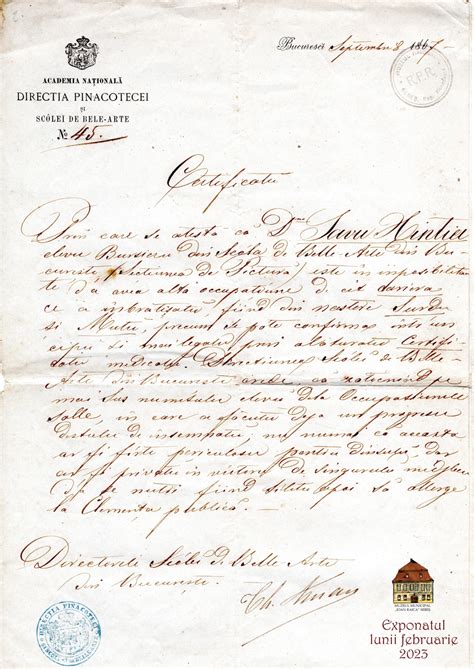 ACADEMIA NAȚIONALĂ
DIRECTIA PINACOTECEI
ȘI
SCÓLEI DE BELE-ARTE
No 45.
Bucuresci Septembru 8 1867
R.P.R.
Certificatu
Prin care se atestă că Dnu Savu Hintia
elevu Bursieru din Scola de Belle Arte din Bu-
curesci, secțiunea de Pictură este in imposibilitate
d'a avea altă occupațiune de cât cariera
ce a imbrațișatu, fiind din nascere Surdu
si Mutu, precum se pote confirma intr'un
si mai legalu prin alaturatul Certifi-
catu medical. Direcțiunea Scolei de Belle
Arte din Bucuresci
mai sus numitului elevu dela Occupațiunile
Salle, in care a făcutu deja un progresu
destulu de insemnatu, nu numai că acesta
ar fi forte periculosu pentru dinsulu, dar
ar fi privatu in viitoru de singurulu
de se nutri fiind silitu apoi să allerge
la Clemența publică.
Directorele Scolei de Belle Arte
din Bucuresci.
DIRECȚIA PINACOTECEI
MUZEUL MUNICIPAL
"IOAN RAICA" SEBEȘ
Exponatul
lunii februarie
2023